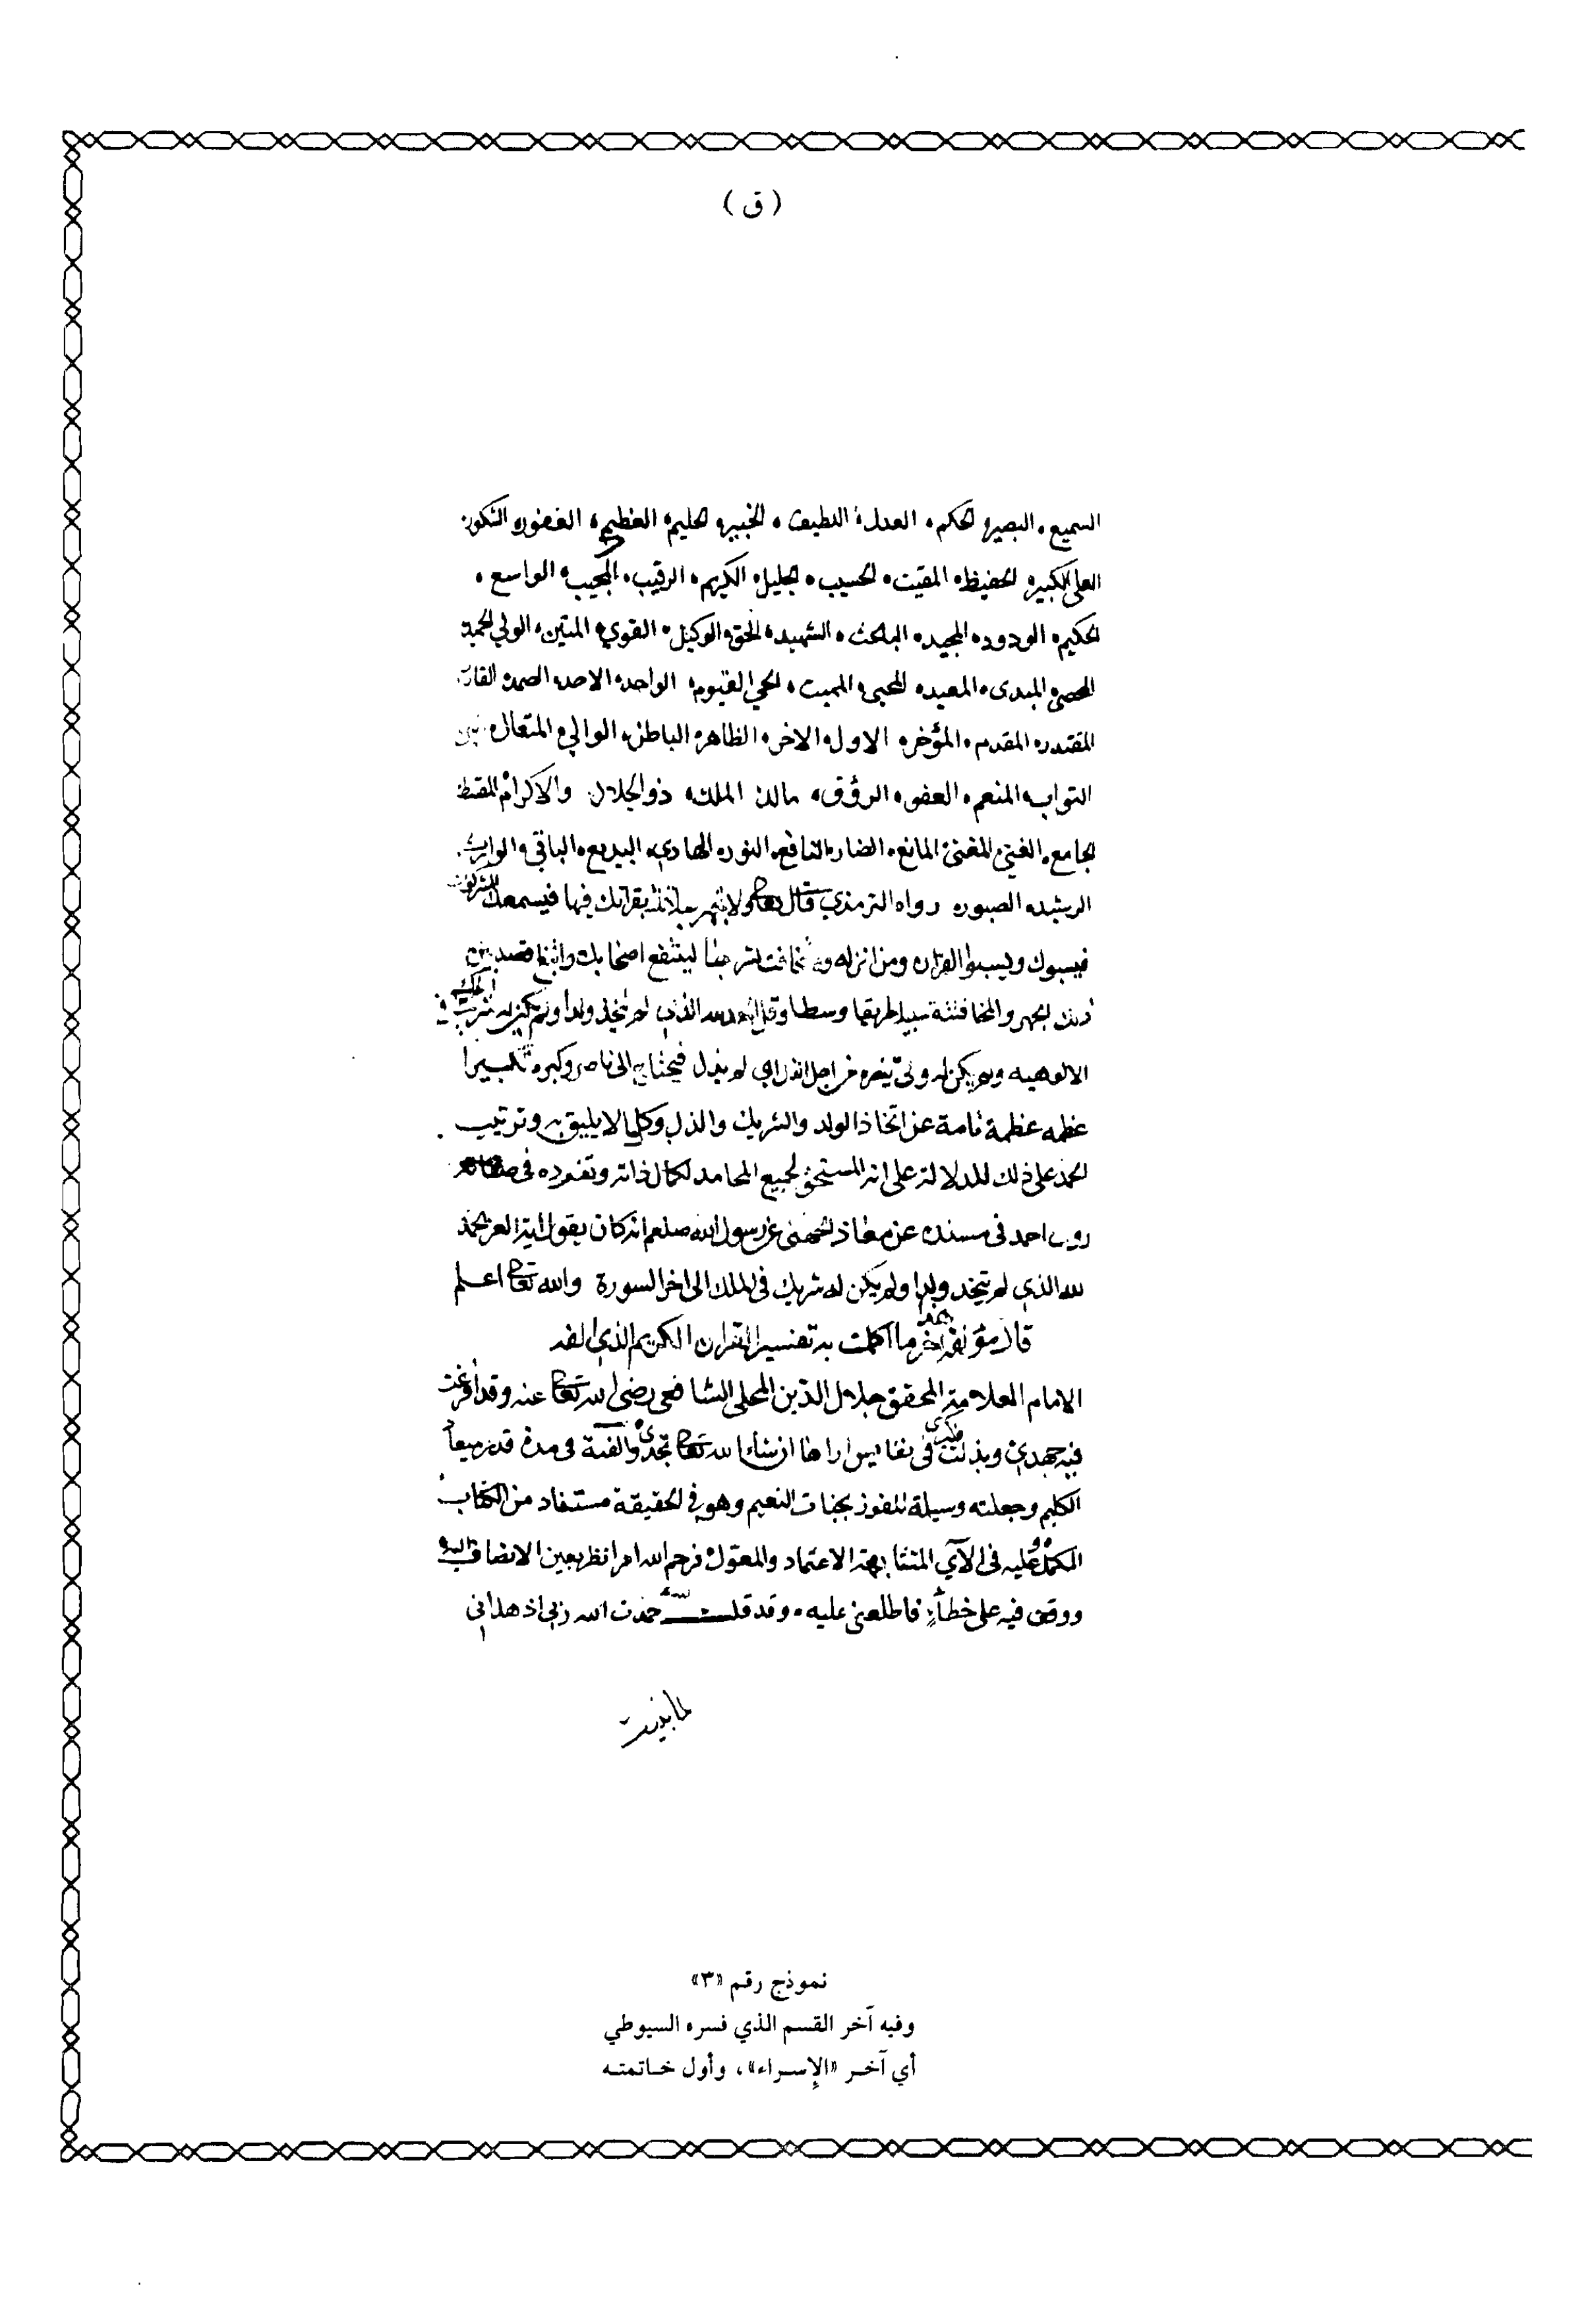 ( ق )
السميع، البصير، الحكم، العدل، اللطيف، الخبير، الحليم، العظيم، الغفور، الشكور،
العلي، الكبير، الحفيظ، المقيت، الحسيب، الجليل، الكريم، الرقيب، المجيب، الواسع،
الحكيم، الودود، المجيد، الباعث، الشهيد، الحق، الوكيل، القوي، المتين، الولي، الحميد
المحصي، المبدىء، المعيد، المحيي، المميت، الحي، القيوم، الواحد، الاحد، الصمد، القادر
المقتدر، المقدم، المؤخر، الاول، الاخر، الظاهر، الباطن، الوالي، المتعال،
التواب، المنعم، العفو، الرؤف، مالك الملك، ذو الجلال والاكرام، المقسط
الجامع، الغني، المغني، المانع، الضار، النافع، النور، الهادي، البديع، الباقي، الوارث،
الرشيد، الصبور، رواه الترمذي قال تعالى ولا تجهر بصلاتك بقراتك فيها فيسمعك المشركون
فيسبوك ويسبوا القران ومن انزله ولا تخافت تسر بها لينتفع اصحابك وابتغ اقصد بين
ذلك الجهر والمخافتة سبيلا طريقا وسطا وقل الحمد لله الذي لم يتخذ ولدا ولم يكن له شريك في الملك في
الالوهيه ولم يكن له ولي ينصره من اجل الذل اي لم يذل فيحتاج الى ناصر وكبره تكبيرا
عظمه عظمة تامة عن اتخاذ الولد والشريك والذل وكل ما لا يليق به وترتيب
الحمد على ذلك للدلالة على انه المستحق لجميع المحامد لكمال ذاته وتفرده في صفاته
روى احمد في مسنده عن معاذ الجهني عن رسول الله صلعم انه كان يقول اية العز الحمد
لله الذي لم يتخذ ولدا ولم يكن له شريك في الملك الى اخر السورة والله تعالى اعلم
قال مؤلفه هذا اخر ما اكملت به تفسير القران الكريم الذي الفه
الامام العلامة المحقق جلال الدين المحلي الشافعي رضي الله تعالى عنه وقد افرغت
فيه جهدي وبذلت فكري في نفايس اراها ان شاء الله تعالى تجدي والفته في مدة قدر ميعاد
الكليم وجعلته وسيلة للفوز بجنات النعيم وهو في الحقيقة مستفاد من الكتاب
المكمل وعليه في الآي المتشابهة الاعتماد والمعول فرحم الله امرا نظر بعين الانصاف اليه
ووقف فيه على خطأ فاطلعني عليه، وقد قلت حمدت الله ربي اذ هداني
نموذج رقم «٣»
وفيه آخر القسم الذي فسره السيوطي
أي آخر «الإسراء»، وأول خاتمته